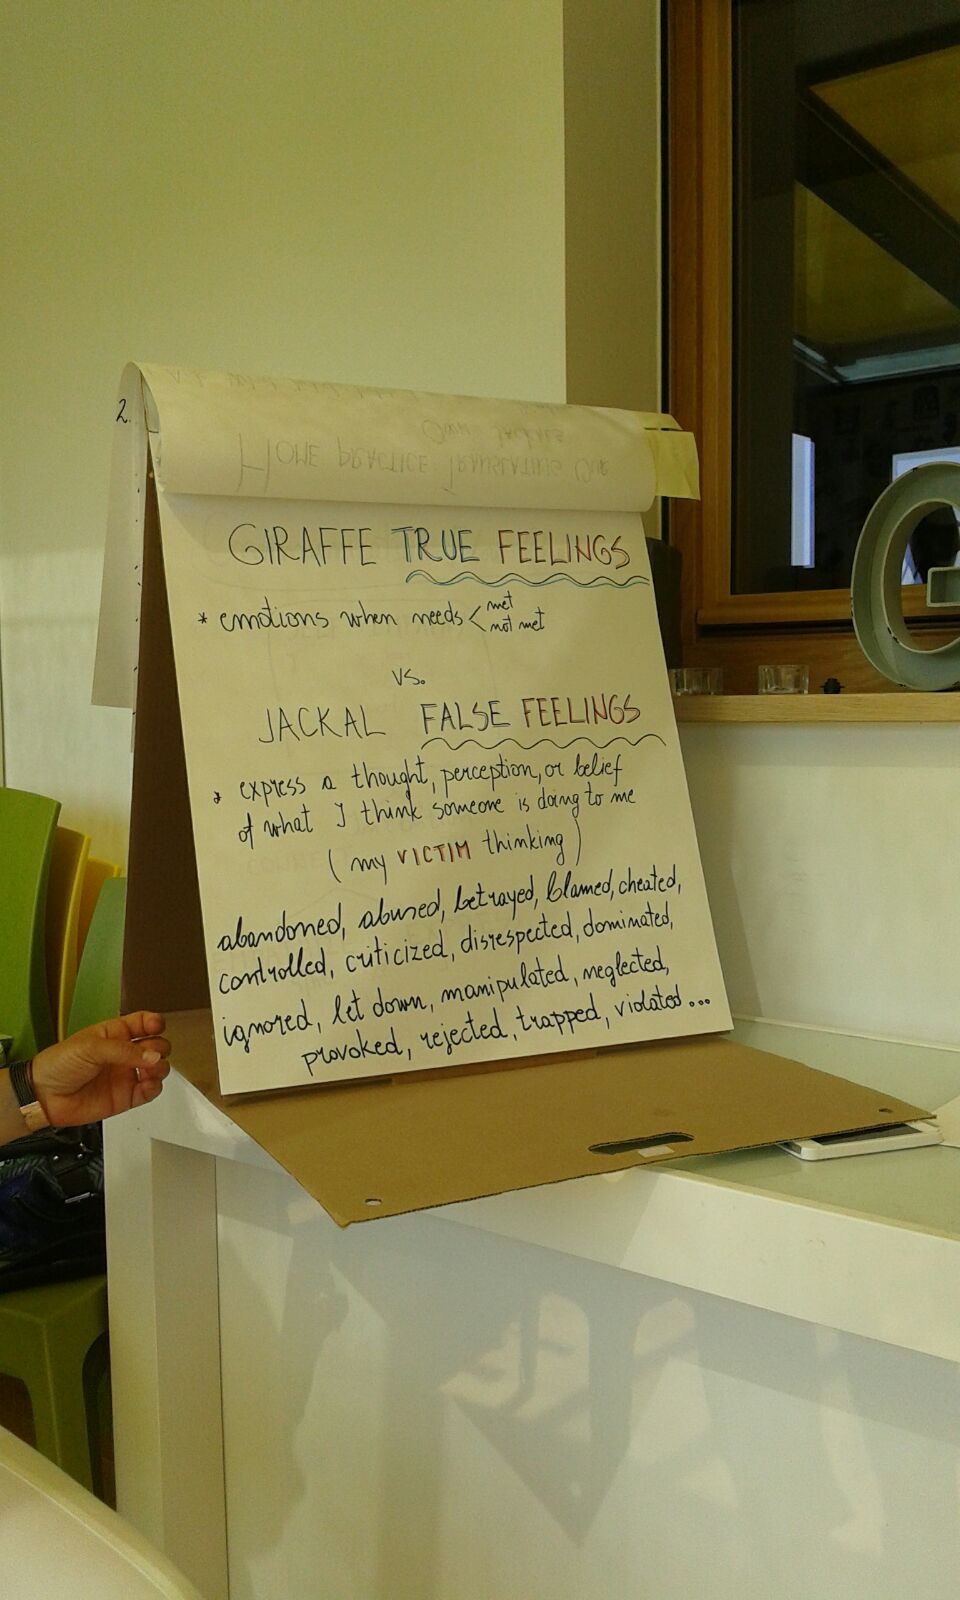 2.
HOME PRACTICE: TRANSLATING OUR
OWN JACKALS
GIRAFFE TRUE FEELINGS
* emotions when needs < met
not met
vs.
JACKAL FALSE FEELINGS
* express a thought, perception, or belief
of what I think someone is doing to me
(my VICTIM thinking)
abandoned, abused, betrayed, blamed, cheated,
controlled, criticized, disrespected, dominated,
ignored, let down, manipulated, neglected,
provoked, rejected, trapped, violated...